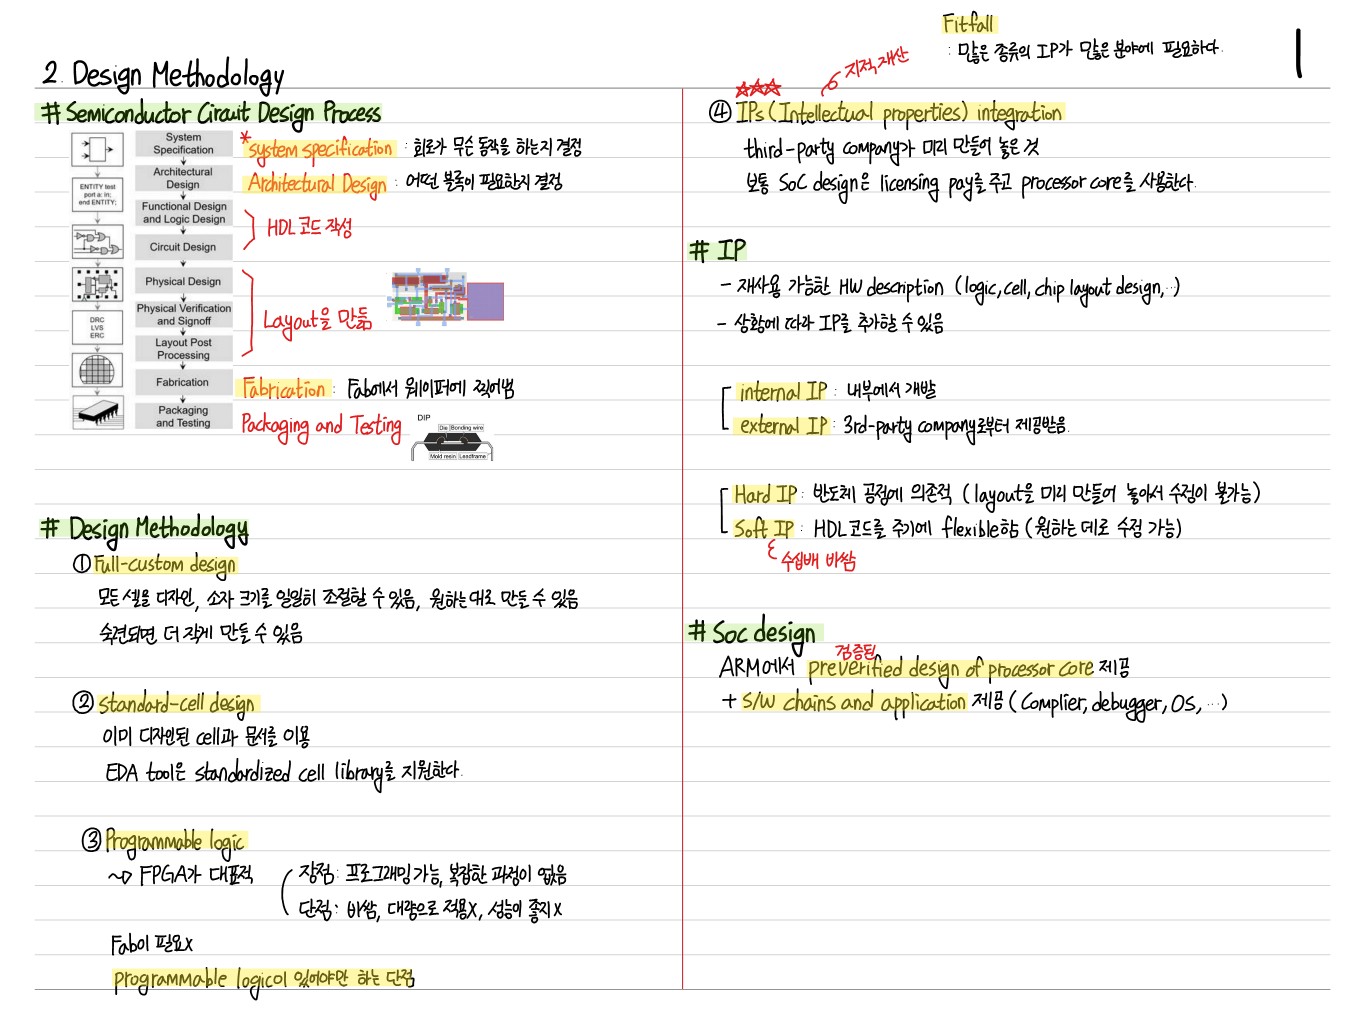 Fitfall
: 많은 종류의 IP가 많은 분야에 필요하다.
1
2. Design Methodology
# Semiconductor Circuit Design Process
System Specification
Architectural Design
Functional Design and Logic Design
Circuit Design
Physical Design
Physical Verification and Signoff
Layout Post Processing
Fabrication
Packaging and Testing
ENTITY test
port a: in;
end ENTITY;
DRC
LVS
ERC
*system specification : 회로가 무슨 동작을 하는지 결정
Architectural Design : 어떤 블록이 필요한지 결정
HDL 코드 작성
Layout을 만듦
Fabrication : Fab에서 웨이퍼에 찍어냄
Packaging and Testing
DIP
Die Bonding wire
Mold resin Leadframe
# Design Methodology
① Full-custom design
모든 셀을 디자인, 소자 크기를 일일히 조절할 수 있음, 원하는대로 만들 수 있음
숙련되면 더 작게 만들 수 있음
② standard-cell design
이미 디자인된 cell과 문서를 이용
EDA tool은 standardized cell library를 지원한다.
③ Programmable logic
~> FPGA가 대표적
장점 : 프로그래밍 가능, 복잡한 과정이 없음
단점 : 비쌈, 대량으로 적용X, 성능이 좋지X
Fab이 필요X
programmable logic이 있어야만 하는 단점
☆☆☆
지적 재산
④ IPs (Intellectual properties) integration
third-party company가 미리 만들어 놓은 것
보통 SoC design은 licensing pay를 주고 processor core를 사용한다.
# IP
- 재사용 가능한 HW description (logic, cell, chip layout design, ..)
- 상황에 따라 IP를 추가할 수 있음
internal IP : 내부에서 개발
external IP : 3rd-party company로부터 제공받음.
Hard IP : 반도체 공정에 의존적 (layout을 미리 만들어 놓아서 수정이 불가능)
Soft IP : HDL 코드를 주기에 flexible함 (원하는 데로 수정 가능)
수십배 비쌈
# Soc design
검증된
ARM에서 preverified design of processor core 제공
+ S/W chains and application 제공 (Complier, debugger, OS, ...)